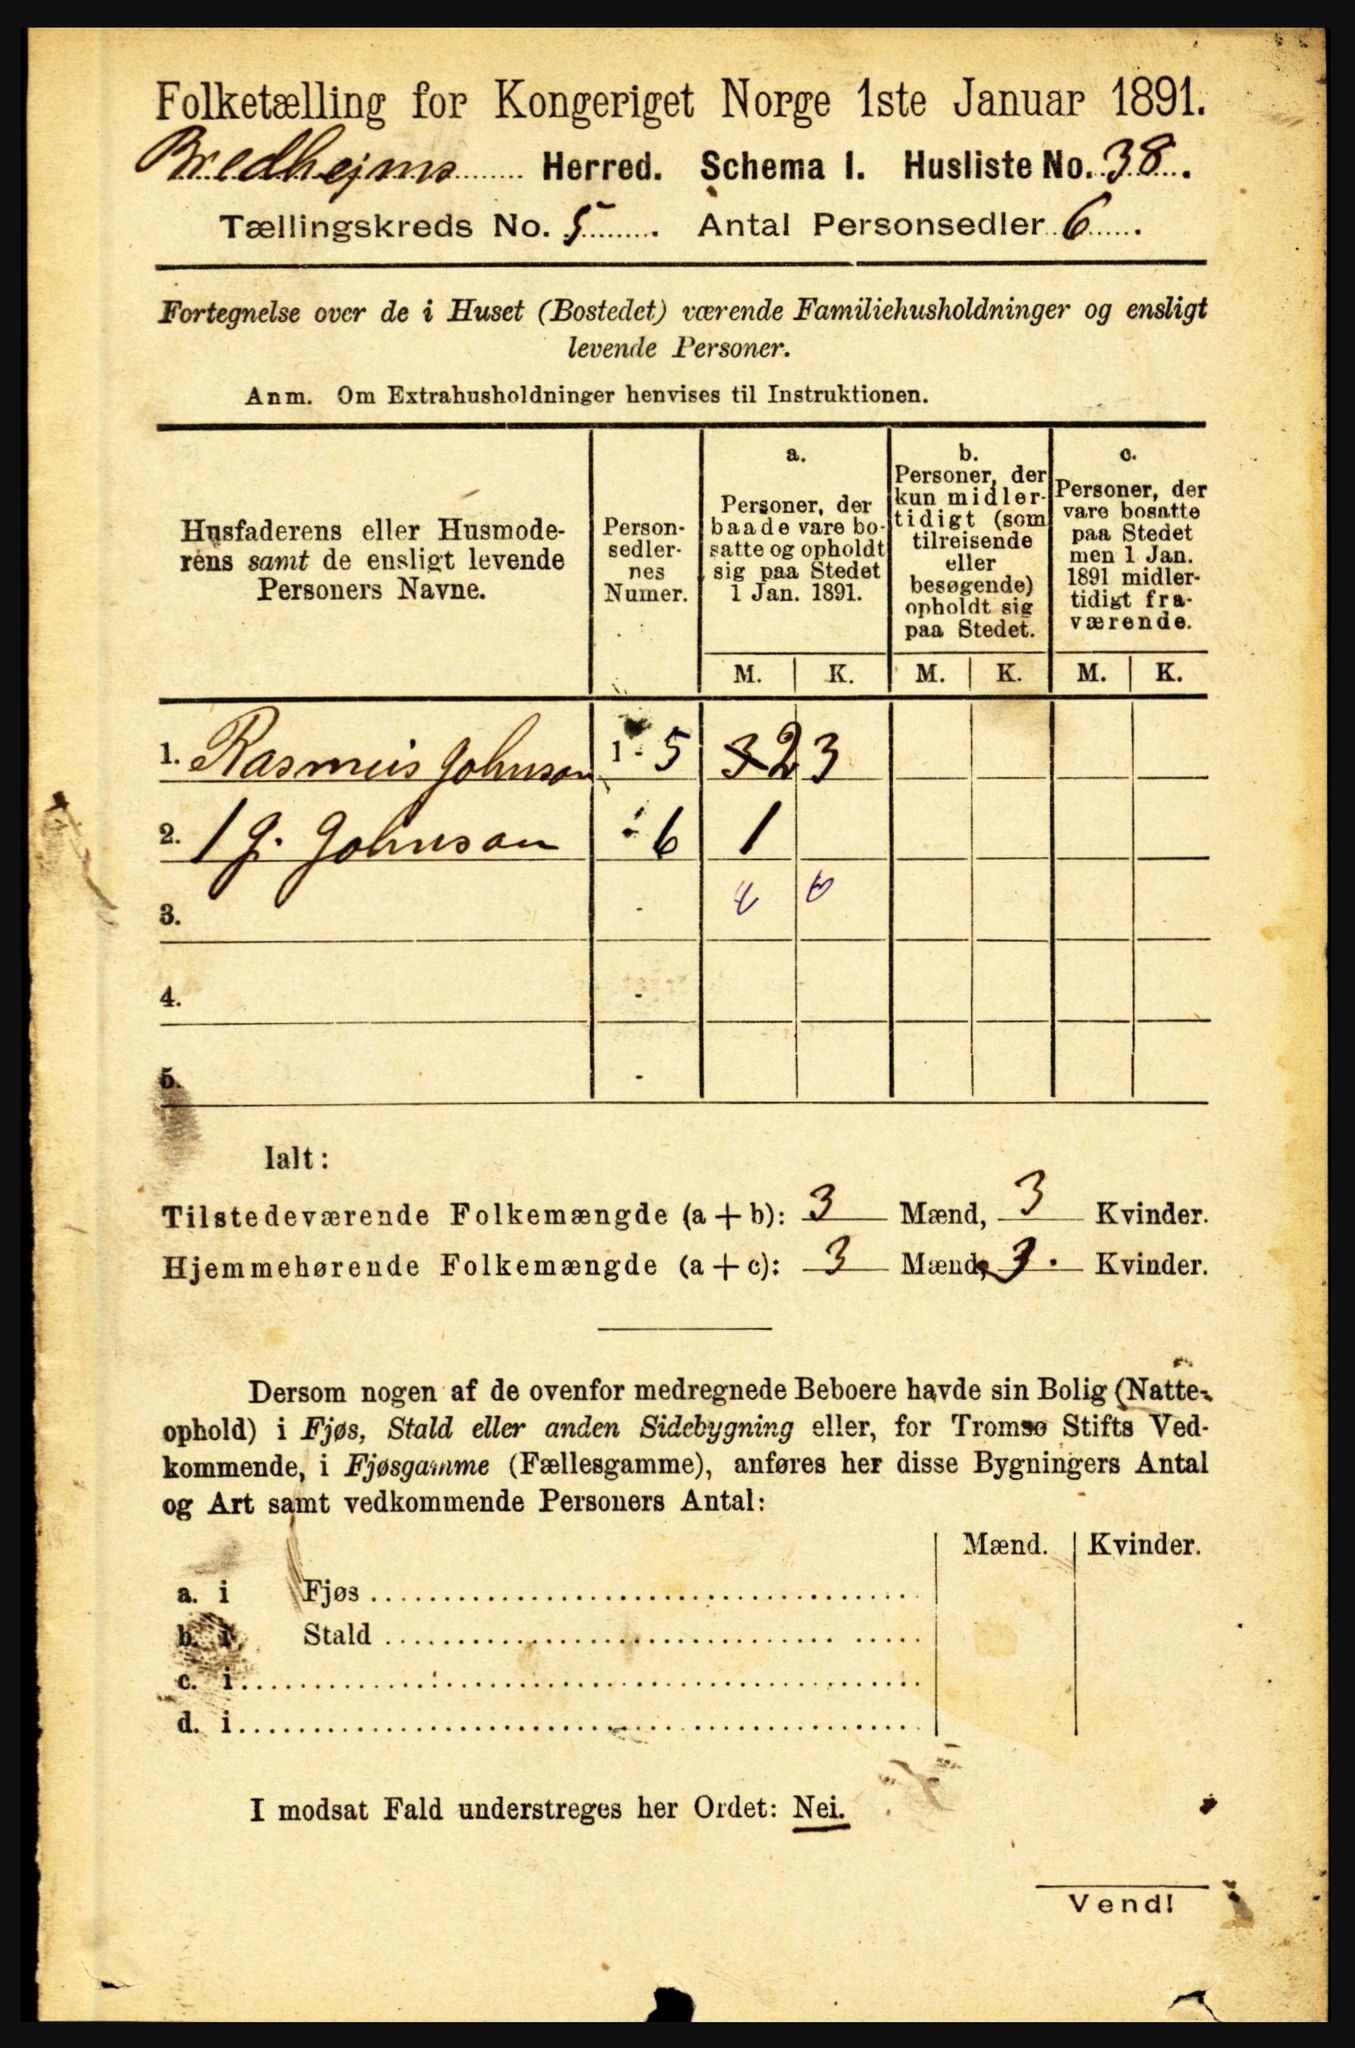 Folketælling for Kongeriget Norge 1ste Januar 1891.
Bredhejms Herred. Schema I. Husliste No. 38.
Tællingskreds No. 5. Antal Personsedler 6.
Fortegnelse over de i Huset (Bostedet) værende Familiehusholdninger og ensligt
levende Personer.
Anm. Om Extrahusholdninger henvises til Instruktionen.
Husfaderens eller Husmode-
rens samt de ensligt levende
Personers Navne.
Person-
sedler-
nes
Numer.
a.
Personer, der
baade vare bo-
satte og opholdt
sig paa Stedet
1 Jan. 1891.
b.
Personer, der
kun midler-
tidigt (som
tilreisende
eller
besøgende)
opholdt sig
paa Stedet.
c.
Personer, der
vare bosatte
paa Stedet
men 1 Jan.
1891 midler-
tidigt fra-
værende.
M. K. M. K. M. K.
1. Rasmus Johnson 1 - 5 3 2 3
2. 1 J. Johnson - 6 1
3. -
4. -
5. -
Ialt:
Tilstedeværende Folkemængde (a + b): 3 Mænd, 3 Kvinder.
Hjemmehørende Folkemængde (a + c): 3 Mænd, 3. Kvinder.
Dersom nogen af de ovenfor medregnede Beboere havde sin Bolig (Natte-
ophold) i Fjøs, Stald eller anden Sidebygning eller, for Tromsø Stifts Ved-
kommende, i Fjøsgamme (Fællesgamme), anføres her disse Bygningers Antal
og Art samt vedkommende Personers Antal:
Mænd. Kvinder.
a. i Fjøs
b. i Stald
c. i
d. i
I modsat Fald understreges her Ordet: Nei.
Vend!